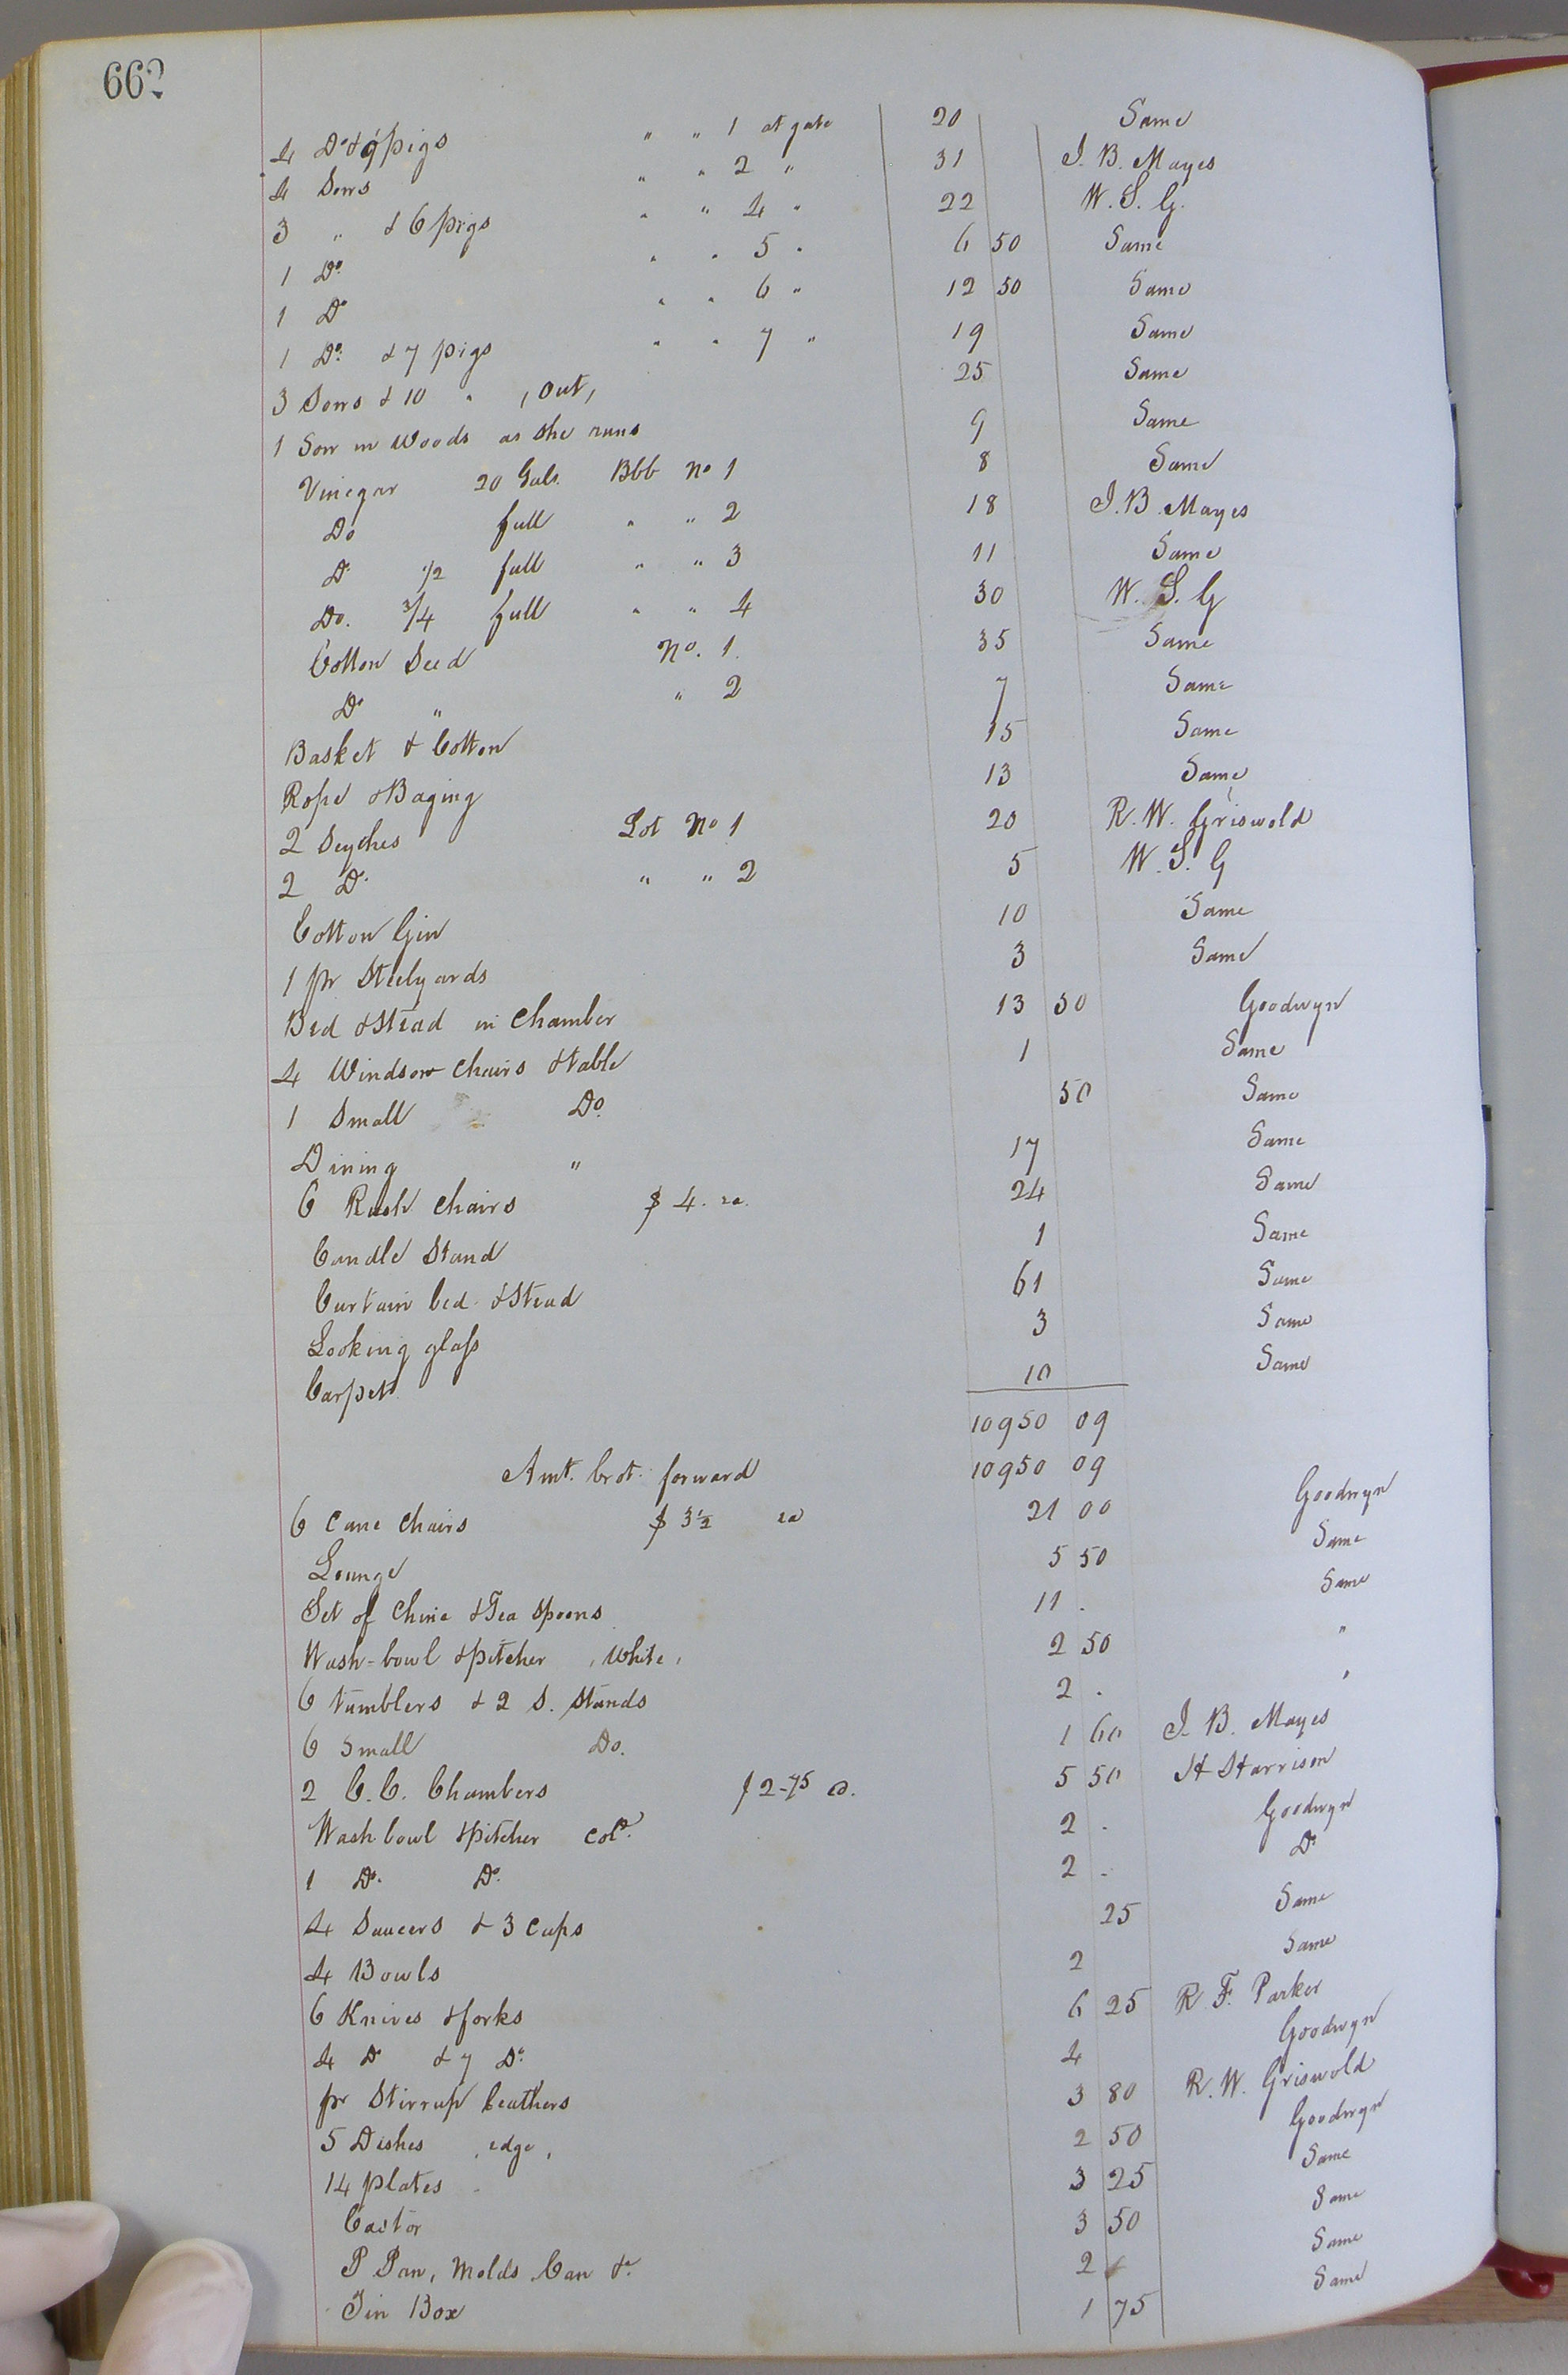 662
4 Do & 9 pigs " " 1 at gate 20 Same
4 Sows " " 2 " 31 J. B. Mayes
3 " & 6 pigs " " 4 " 22 W. S. G.
1 Do " " 5 " 6 50 Same
1 Do " " 6 " 12 50 Same
1 Do & 7 pigs " " 7 " 19 Same
3 Sows & 10 " , Out, 25 Same
1 Sow in Woods as she runs 9 Same
Vinegar 20 Gals. Bbb No 1 8 Same
Do full " " 2 18 J. B. Mayes
Do 1/2 full " " 3 11 Same
Do. 3/4 full " " 4 30 W. S. G
Cotton Seed No. 1. 35 Same
Do " " 2 7 Same
Basket & Cotton 15 Same
Rope & Baging 13 Same
2 Scyches Lot No 1 20 R. W. Griswold
2 Do " " 2 5 W. S. G
Cotton Gin 10 Same
1 pr Steelyards 3 Same
Bed & Stead in Chamber 13 50 Goodwyn
4 Windsor Chairs & table 1 Same
1 Small Do. 50 Same
Dining " 17 Same
6 Rush Chairs $ 4. ea. 24 Same
Candle Stand 1 Same
Curtain bed & Stead 61 Same
Looking glass 3 Same
Carpet 10 Same
10950 09
Amt. brot. forward 10950 09
6 Cane Chairs $ 3 1/2 ea 21 00 Goodwyn
Lounge 5 50 Same
Set of Chine & Tea Spoons 11 . Same
Wash-bowl & pitcher , White , 2 50 "
6 tumblers & 2 S. Stands 2 . "
6 Small Do. 1 60 J. B. Mayes
2 C. C. Chambers $ 2-75 a. 5 50 H Harrison
Wash bowl & pitcher Cold. 2 . Goodwyn
1 Do. Do. 2 - Do
4 Saucers & 3 Cups 25 Same
4 Bowls 2 Same
6 Knives & forks 6 25 R. F. Parker
4 Do & 7 Do. 4 Goodwyn
pr Stirrup Leathers 3 80 R. W. Griswold
5 Dishes , edge , 2 50 Goodwyn
14 plates 3 25 Same
Castor 3 50 Same
P Pan, Molds Can &c 2 Same
Tin Box 1 75 Same